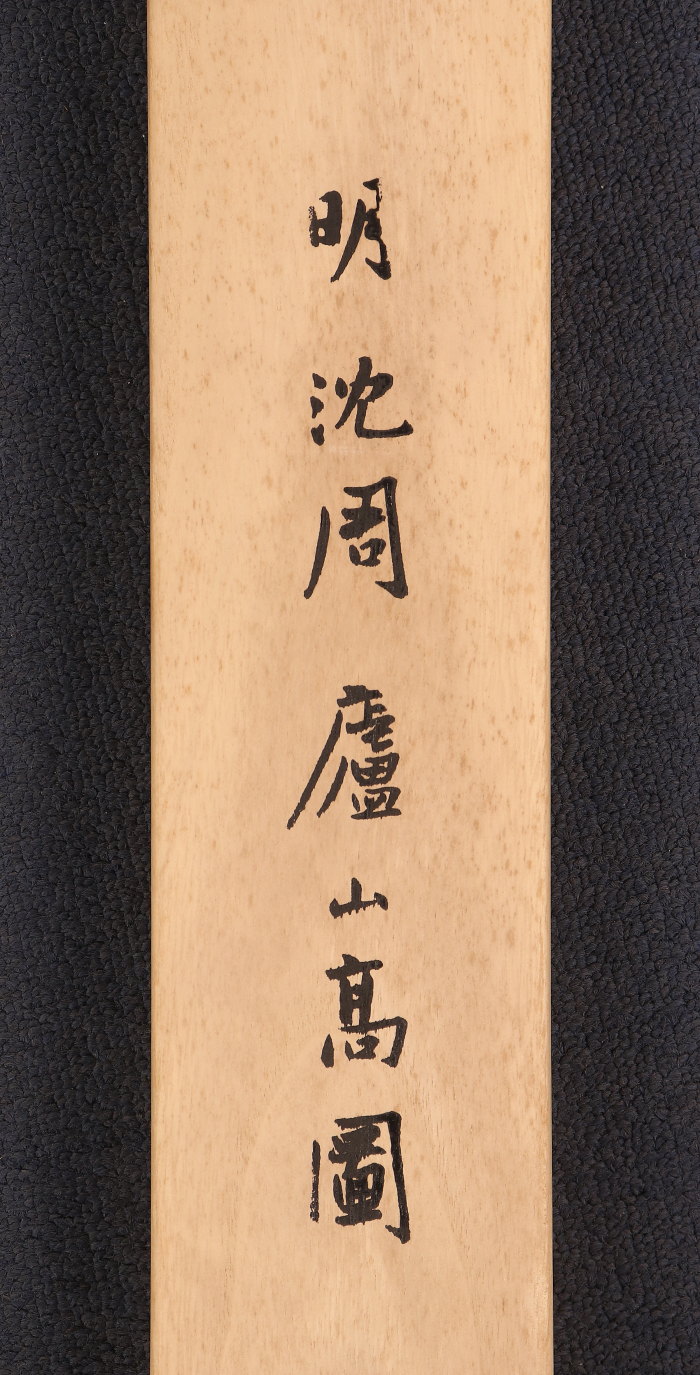 明 沈周 廬山髙圖